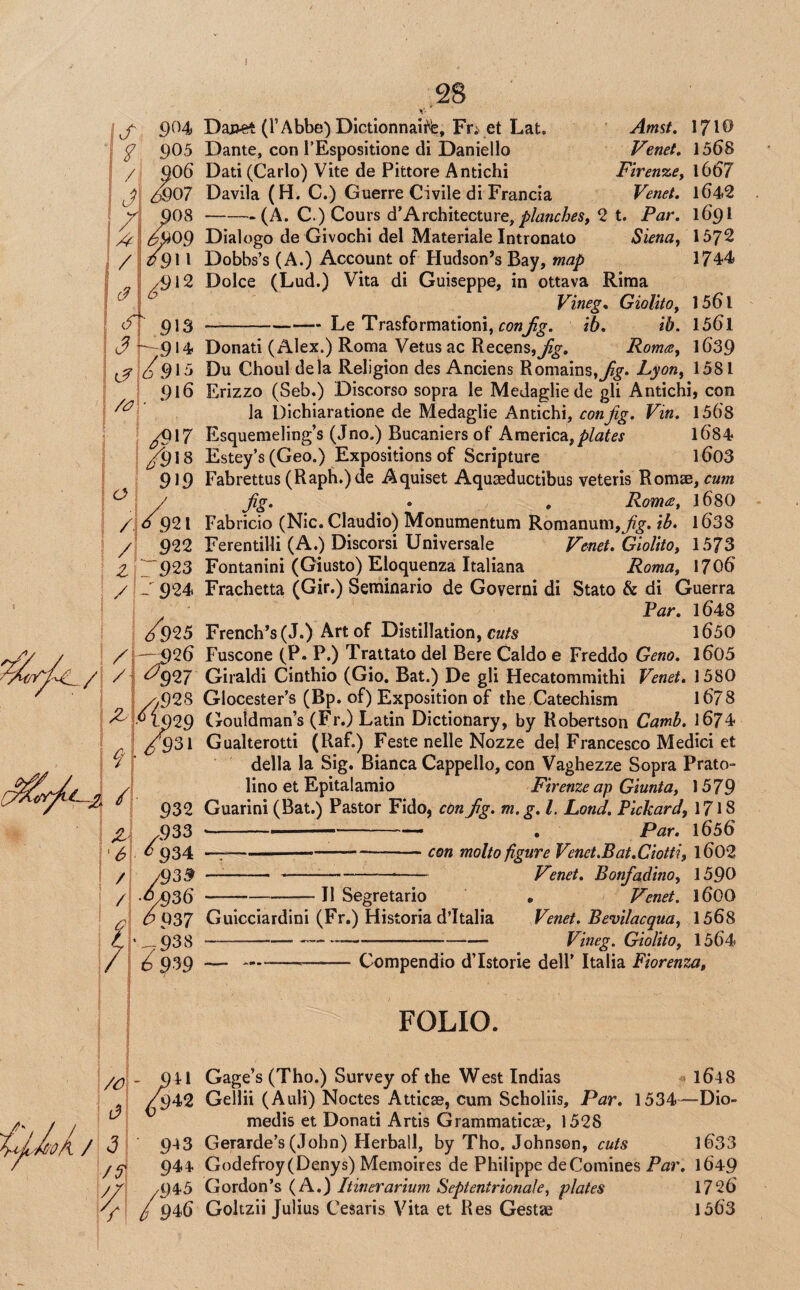 28
904 Danet (l'Abbe) Dictionnaire, Fr. et Lat. Amst. 1710
905 Dante, con l'Espositione di Daniello Venet. 1568
906 Dati (Carlo) Vite de Pittore Antichi Firenze, 1667
907 Davila (H. C.) Guerre Civile di Francia Venet. 1642
908 ——— (A. C.) Cours d'Architecture, planches, 2 t. Par. 1691
909 Dialogo de Givochi del Materiale Intronato Siena, 1572
911 Dobbs's (A.) Account of Hudson's Bay, map 1744
912 Dolce (Lud.) Vita di Guiseppe, in ottava Rima
Vineg. Giolito, 1561
913 ——— Le Trasformationi, con fig. ib. ib. 1561
914 Donati (Alex.) Roma Vetus ac Recens, fig. Romæ, 1639
915 Du Choul de la Religion des Anciens Romains, fig. Lyon, 1581
916 Erizzo (Seb.) Discorso sopra le Medaglie de gli Antichi, con
la Dichiaratione de Medaglie Antichi, con fig. Vin. 1568
917 Esquemeling's (Jno.) Bucaniers of America, plates 1684
918 Estey's (Geo.) Expositions of Scripture 1603
919 Fabrettus (Raph.) de Aquiset Aquæductibus veteris Romæ, cum
fig. . . Romæ, 1680
921 Fabricio (Nic. Claudio) Monumentum Romanum, fig. ib. 1638
922 Ferentilli (A.) Discorsi Universale Venet. Giolito, 1573
923 Fontanini (Giusto) Eloquenza Italiana Roma, 1706
924 Frachetta (Gir.) Seminario de Governi di Stato & di Guerra
Par. 1648
925 French's (J.) Art of Distillation, cuts 1650
926 Fuscone (P. P.) Trattato del Bere Caldo e Freddo Geno. 1605
927 Giraldi Cinthio (Gio. Bat.) De gli Hecatommithi Venet. 1580
928 Glocester's (Bp. of) Exposition of the Catechism 1678
929 Gouldman's (Fr.) Latin Dictionary, by Robertson Camb. 1674
931 Gualterotti (Raf.) Feste nelle Nozze del Francesco Medici et
della la Sig. Bianca Cappello, con Vaghezze Sopra Prato-
lino et Epitalamio Firenze ap Giunta, 1579
932 Guarini (Bat.) Pastor Fido, con fig. m. g. l. Lond. Pickard, 1718
933 ——— . Par. 1656
934 ——— con molto figure Venet. Bat. Ciotti, 1602
935 ——— Venet. Bonfadino, 1590
936 ——— Il Segretario . Venet. 1600
937 Guicciardini (Fr.) Historia d'Italia Venet. Bevilacqua, 1568
938 ——— Vineg. Giolito, 1564
939 ——— Compendio d'Istorie dell' Italia Fiorenza,
FOLIO.
941 Gage's (Tho.) Survey of the West Indias 1648
942 Gellii (Auli) Noctes Atticæ, cum Scholiis, Par. 1534—Dio-
medis et Donati Artis Grammaticæ, 1528
943 Gerarde's (John) Herball, by Tho. Johnson, cuts 1633
944 Godefroy (Denys) Memoires de Philippe de Comines Par. 1649
945 Gordon's (A.) Itinerarium Septentrionale, plates 1726
946 Goltzii Julius Cesaris Vita et Res Gestæ 1563